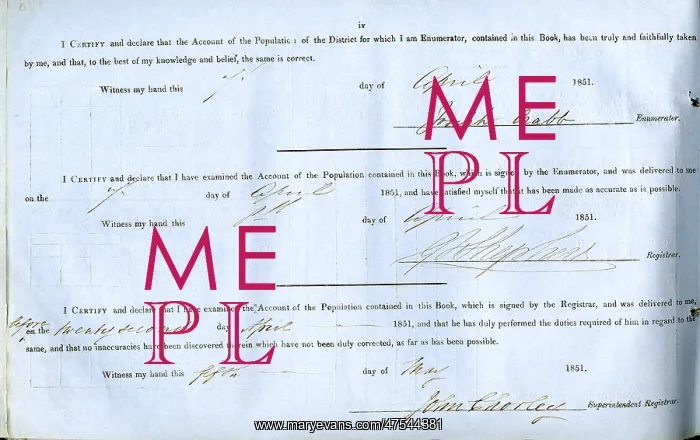 iv
I CERTIFY and declare that the Account of the Population of the District for which I am Enumerator, contained in this Book, has been truly and faithfully taken
by me, and that, to the best of my knowledge and belief, the same is correct.
Witness my hand this 7th day of April 1851.
Crabb Enumerator.
I CERTIFY and declare that I have examined the Account of the Population contained in this Book, which is signed by the Enumerator, and was delivered to me
on the 7th day of April 1851, and have satisfied myself that it has been made as accurate as is possible.
Witness my hand this day of April 1851.
Registrar.
I CERTIFY and declare that I have examined the Account of the Population contained in this Book, which is signed by the Registrar, and was delivered to me,
before on the twenty second day April 1851, and that he has duly performed the duties required of him in regard to the
same, and that no inaccuracies have been discovered therein which have not been duly corrected, as far as has been possible.
Witness my hand this fifth day of May 1851.
John Chorley Superintendent Registrar.
ME
PL
ME
PL
www.maryevans.com/47544381